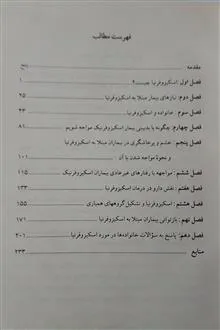 فهرست مطالب
مقدمه پنج
فصل اول: اسکیزوفرنیا چیست؟ ۱
فصل دوم: نیازهای بیمار مبتلا به اسکیزوفرنیا ۲۵
فصل سوم: خانواده و اسکیزوفرنیا ۴۳
فصل چهارم: چگونه با بدبینی بیمار اسکیزوفرنیک مواجه شویم ۸۱
فصل پنجم: خشم و پرخاشگری در بیماران مبتلا به اسکیزوفرنیا
و نحوهٔ مواجه شدن با آن ۱۰۱
فصل ششم: مواجهه با رفتارهای غیرعادی بیماران اسکیزوفرنیک ۱۱۵
فصل هفتم: نقش دارو در درمان اسکیزوفرنیا ۱۳۳
فصل هشتم: اسکیزوفرنیا و تشکیل گروههای همیاری ۱۵۵
فصل نهم: بازتوانی بیماران مبتلا به اسکیزوفرنیا ۱۷۱
فصل دهم: پاسخ به سؤالات خانواده‌ها در مورد اسکیزوفرنیا ۲۰۱
منابع ۲۳۳